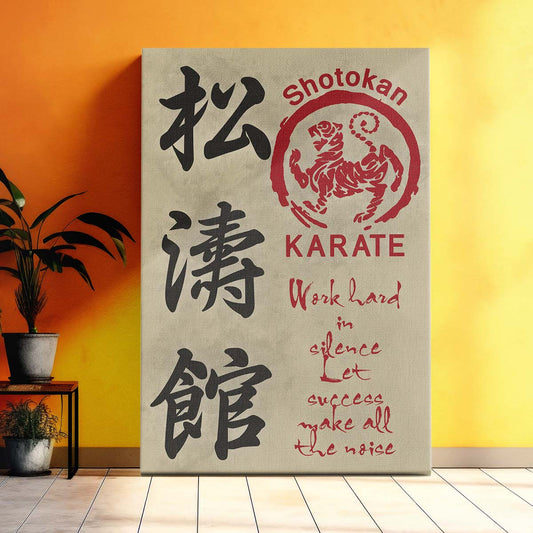 松
濤
館
Shotokan
KARATE
Work hard
in
silence
Let
success
make all
the noise